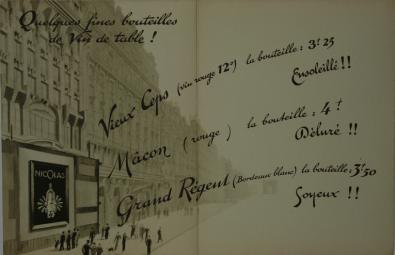 Quelques fines bouteilles
de Vin de table !
Vieux Ceps (vin rouge 12°) la bouteille : 3f 25
Ensoleillé !!
Mâcon (rouge) la bouteille : 4f
Déluré !!
Grand Régent (Bordeaux blanc) la bouteille : 3f50
Joyeux !!
NICOLAS